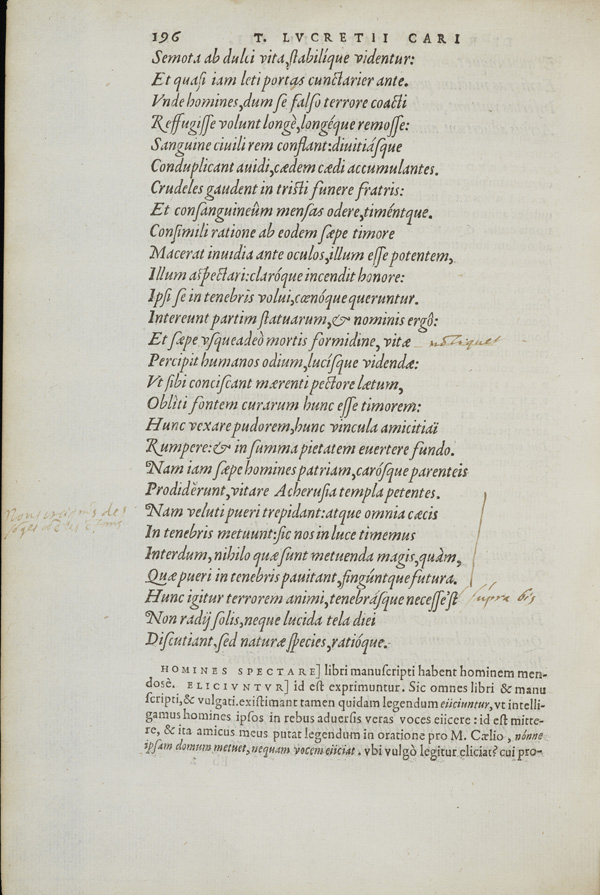 196 T. LVCRETII CARI
Semota ab dulci vita, stabilíque videntur:
Et quasi iam leti portas cunctarier ante.
Vnde homines, dum se falso terrore coacti
Reffugisse volunt longè, longéque remosse:
Sanguine ciuili rem conflant: diuitiásque
Conduplicant auidi, cædem cædi accumulantes.
Crudeles gaudent in tristi funere fratris:
Et consanguineûm mensas odere, timéntque.
Consimili ratione ab eodem sæpe timore
Macerat inuidia ante oculos, illum esse potentem,
Illum aspectari: claróque incendit honore:
Ipsi se in tenebris volui, cœnóque queruntur.
Intereunt partim statuarum, & nominis ergô:
Et sæpe vsqueadeò mortis formidine, vitæ
Percipit humanos odium, lucísque videndæ:
Vt sibi conciscant mærenti pectore lætum,
Obliti fontem curarum hunc esse timorem:
Hunc vexare pudorem, hunc vincula amicitiaï
Rumpere: & in summa pietatem euertere fundo.
Nam iam sæpe homines patriam, carósque parenteis
Prodiderunt, vitare Acherusia templa petentes.
Nam veluti pueri trepidant: atque omnia cæcis
In tenebris metuunt: sic nos in luce timemus
Interdum, nihilo quæ sunt metuenda magis, quàm,
Quæ pueri in tenebris pauitant, fingúntque futura.
Hunc igitur terrorem animi, tenebrásque necesse'st supra bis
Non radij solis, neque lucida tela diei
Discutiant, sed naturæ species, ratióque.
HOMINES SPECTARE] libri manuscripti habent hominem men-
dosè. ELICIVNTVR] id est exprimuntur. Sic omnes libri & manu
scripti, & vulgati. existimant tamen quidam legendum eiiciuntur, vt intelli-
gamus homines ipsos in rebus aduersis veras voces eiicere: id est mitte-
re, & ita amicus meus putat legendum in oratione pro M. Cælio, nónne
ipsam domum metuet, nequam vocem eiiciat. vbi vulgò legitur eliciat? cui pro-